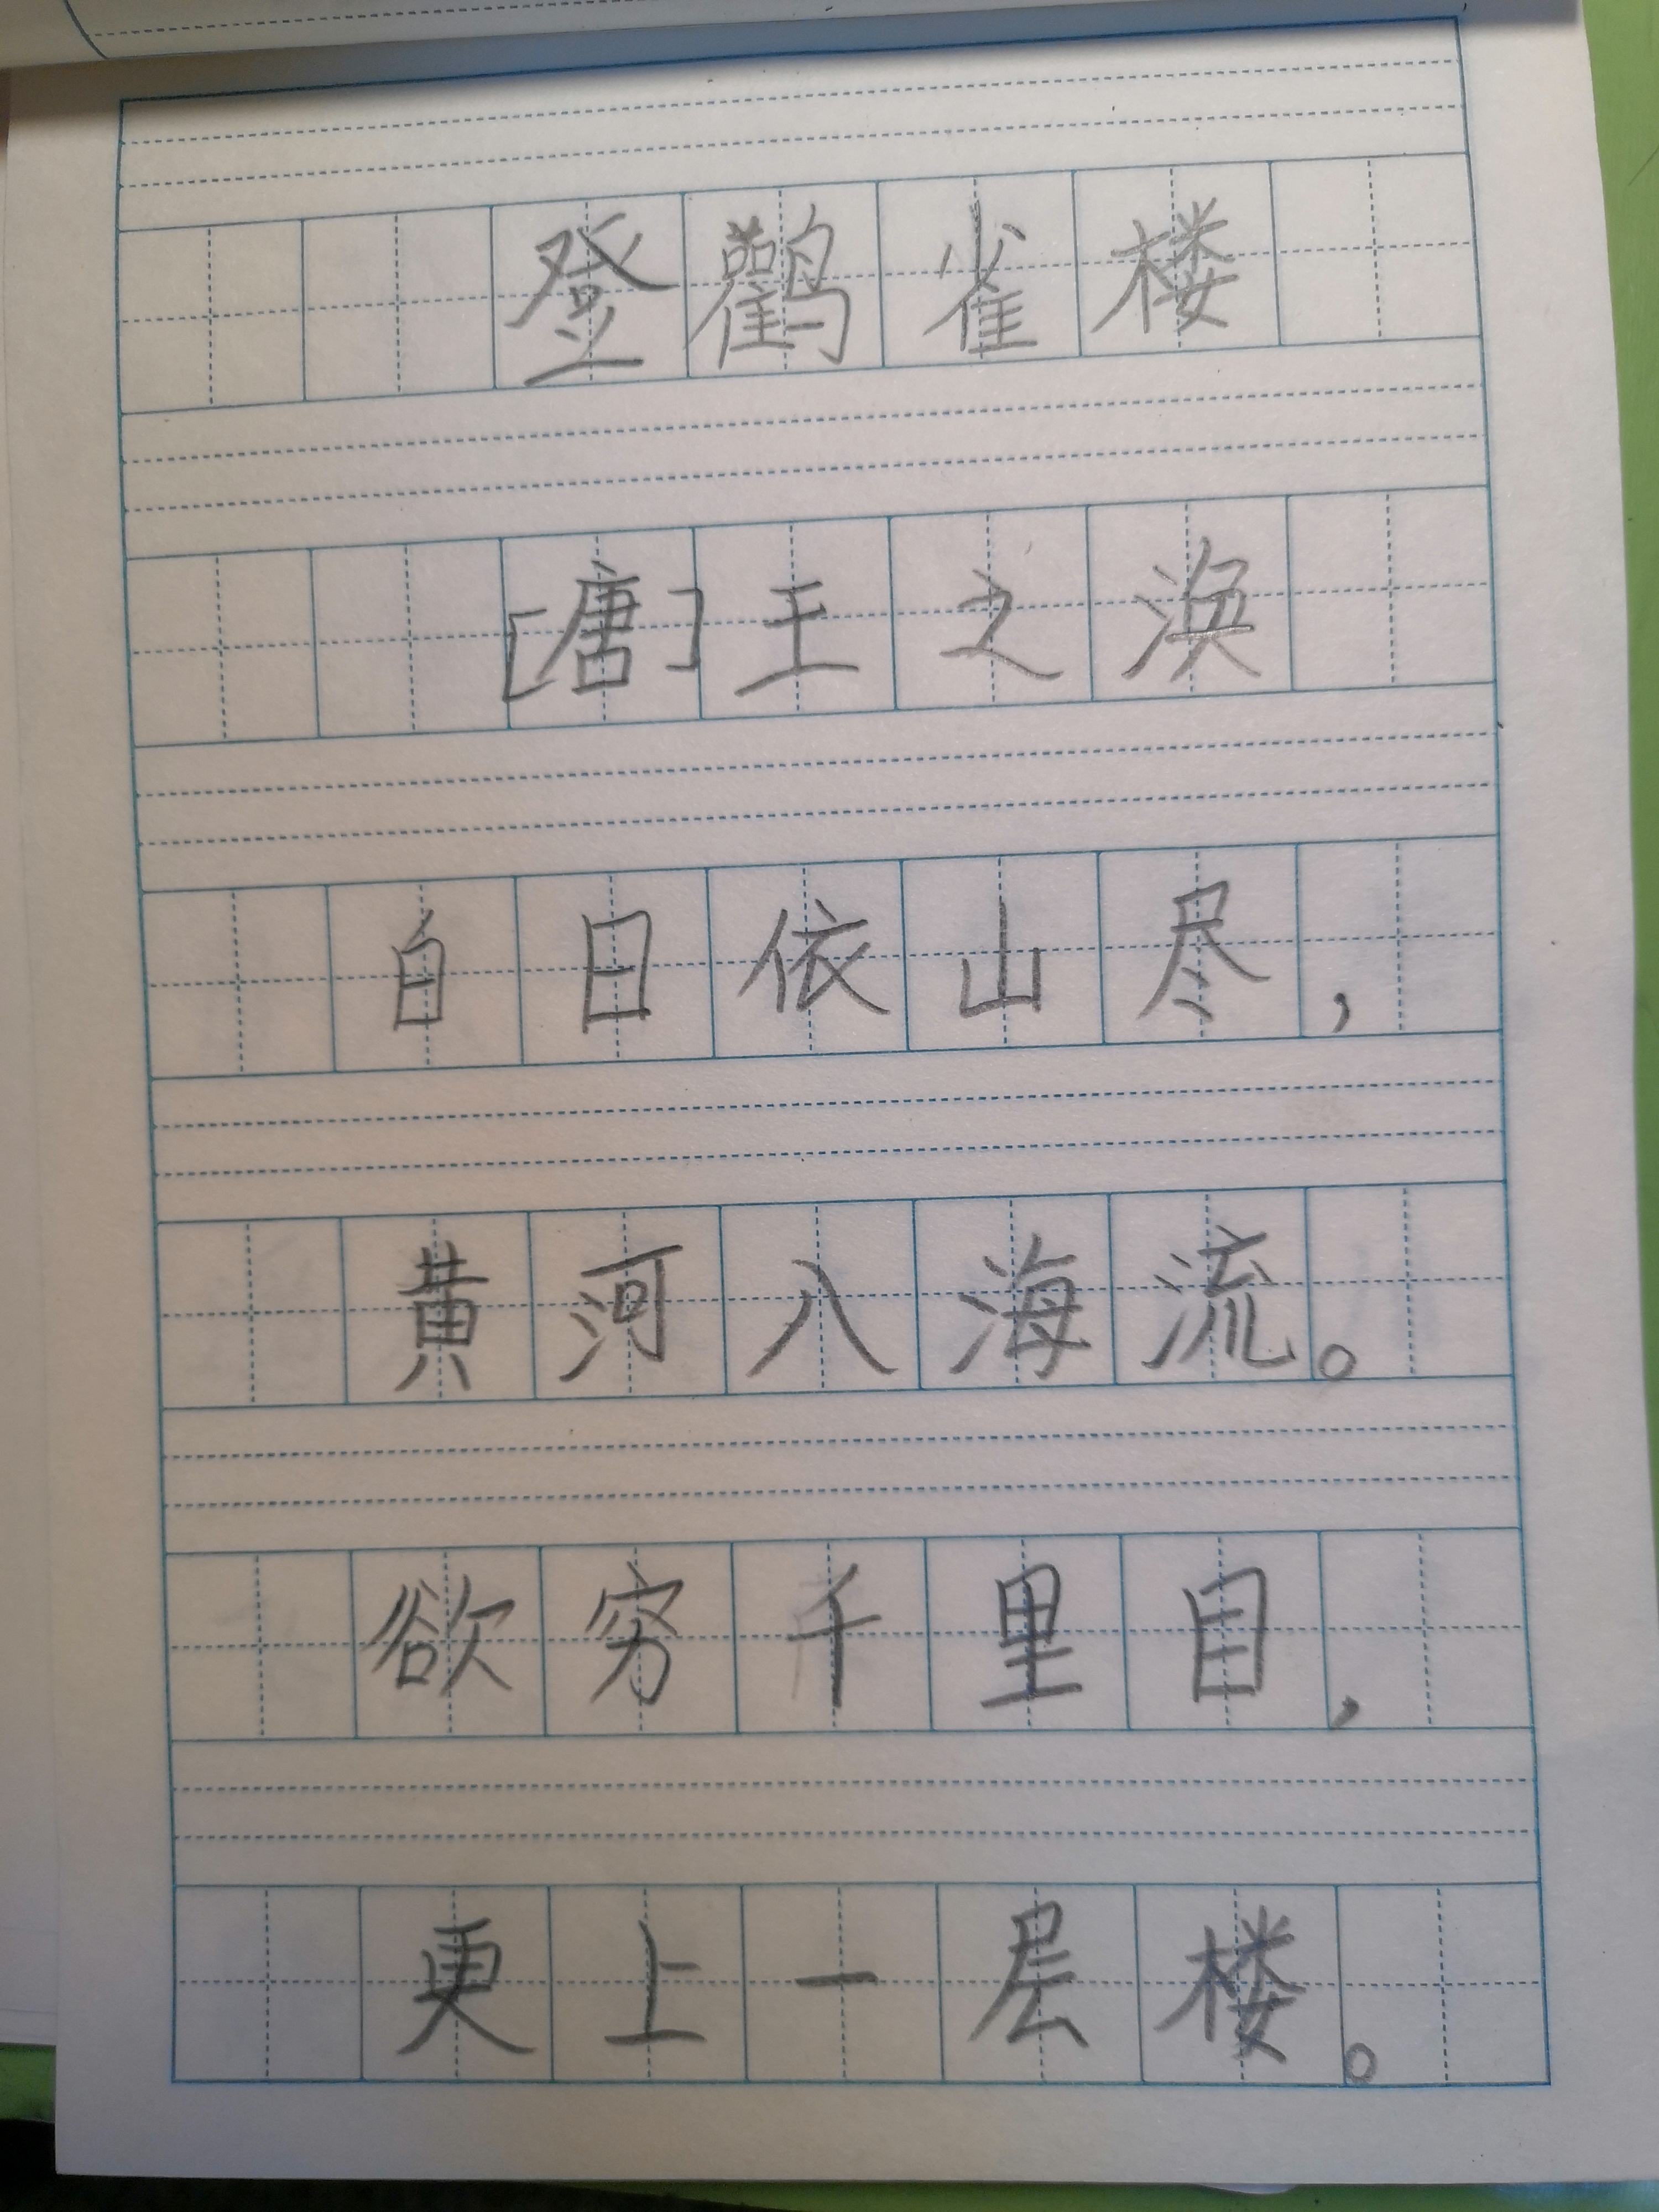 登鹳雀楼
[唐]王之涣
白日依山尽，
黄河入海流。
欲穷千里目，
更上一层楼。